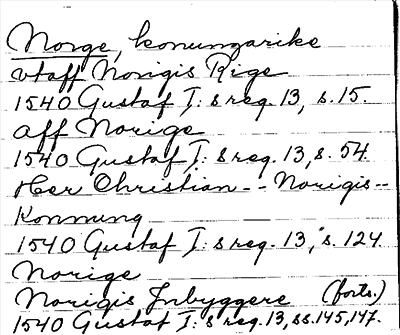 Norge, konungarike
vtaff Norigis Rige
1540 Gustaf I:s reg. 13, s. 15.
aff Norige
1540 Gustaf I:s reg. 13, s. 54.
Her Christian -- Norigis --
Konnung
1540 Gustaf I:s reg. 13, s. 124.
Norige
Norigis Jnbyggere (forts.)
1540 Gustaf I:s reg. 13, ss. 145, 147.